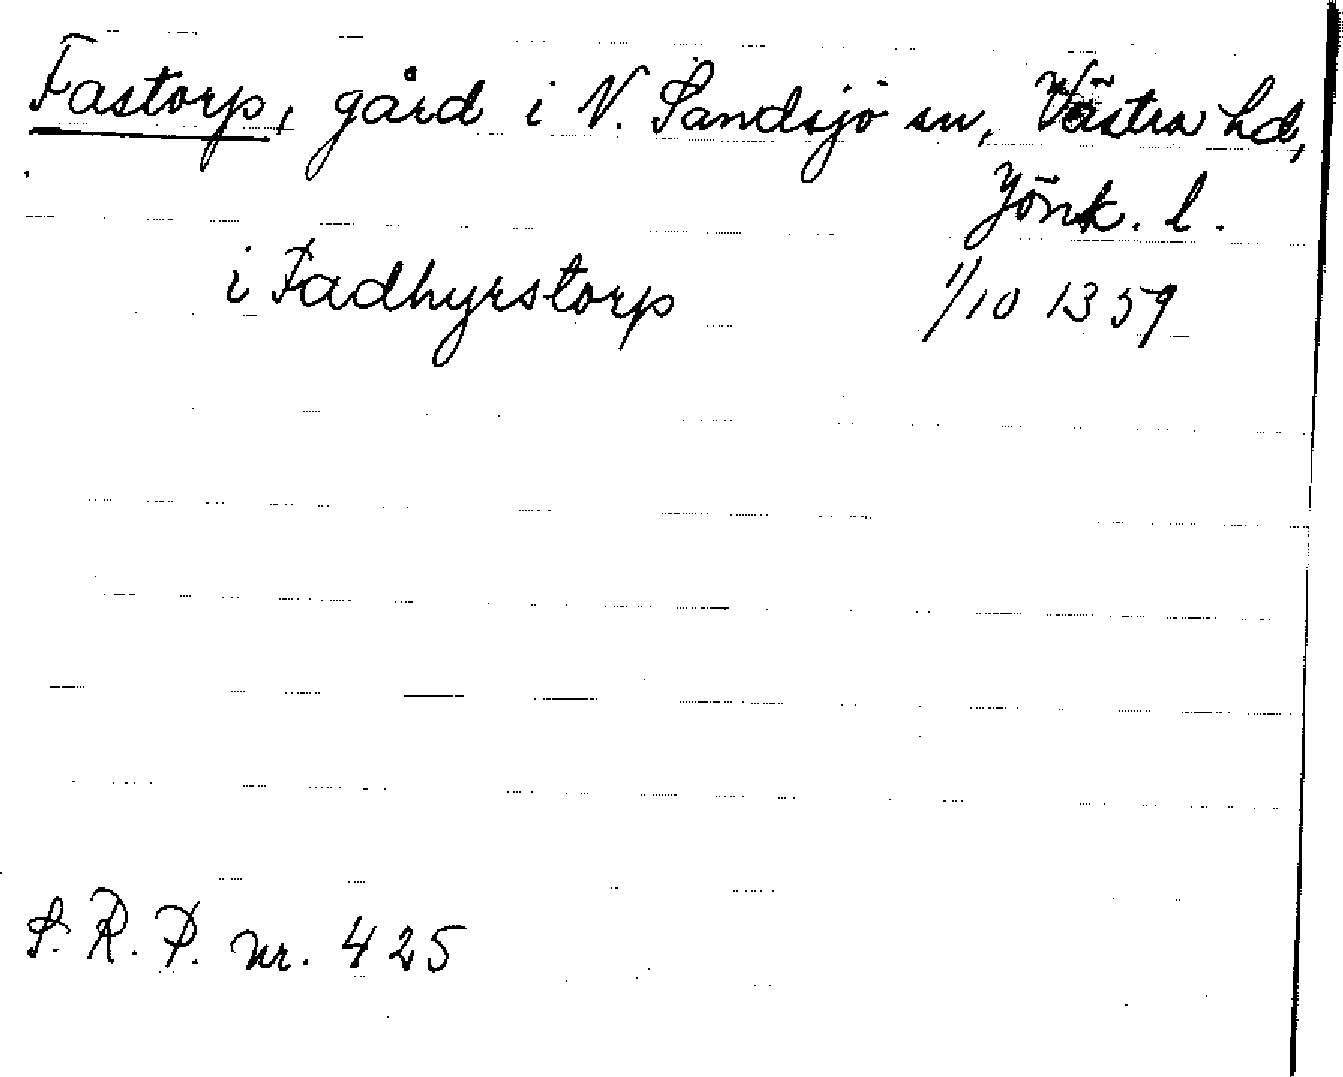 Fastorp, gård i N. Sandsjö sn, Västra hd,
Jönk. l.
i Fadhyrstorp 1/10 1359
S. R. P. nr. 425